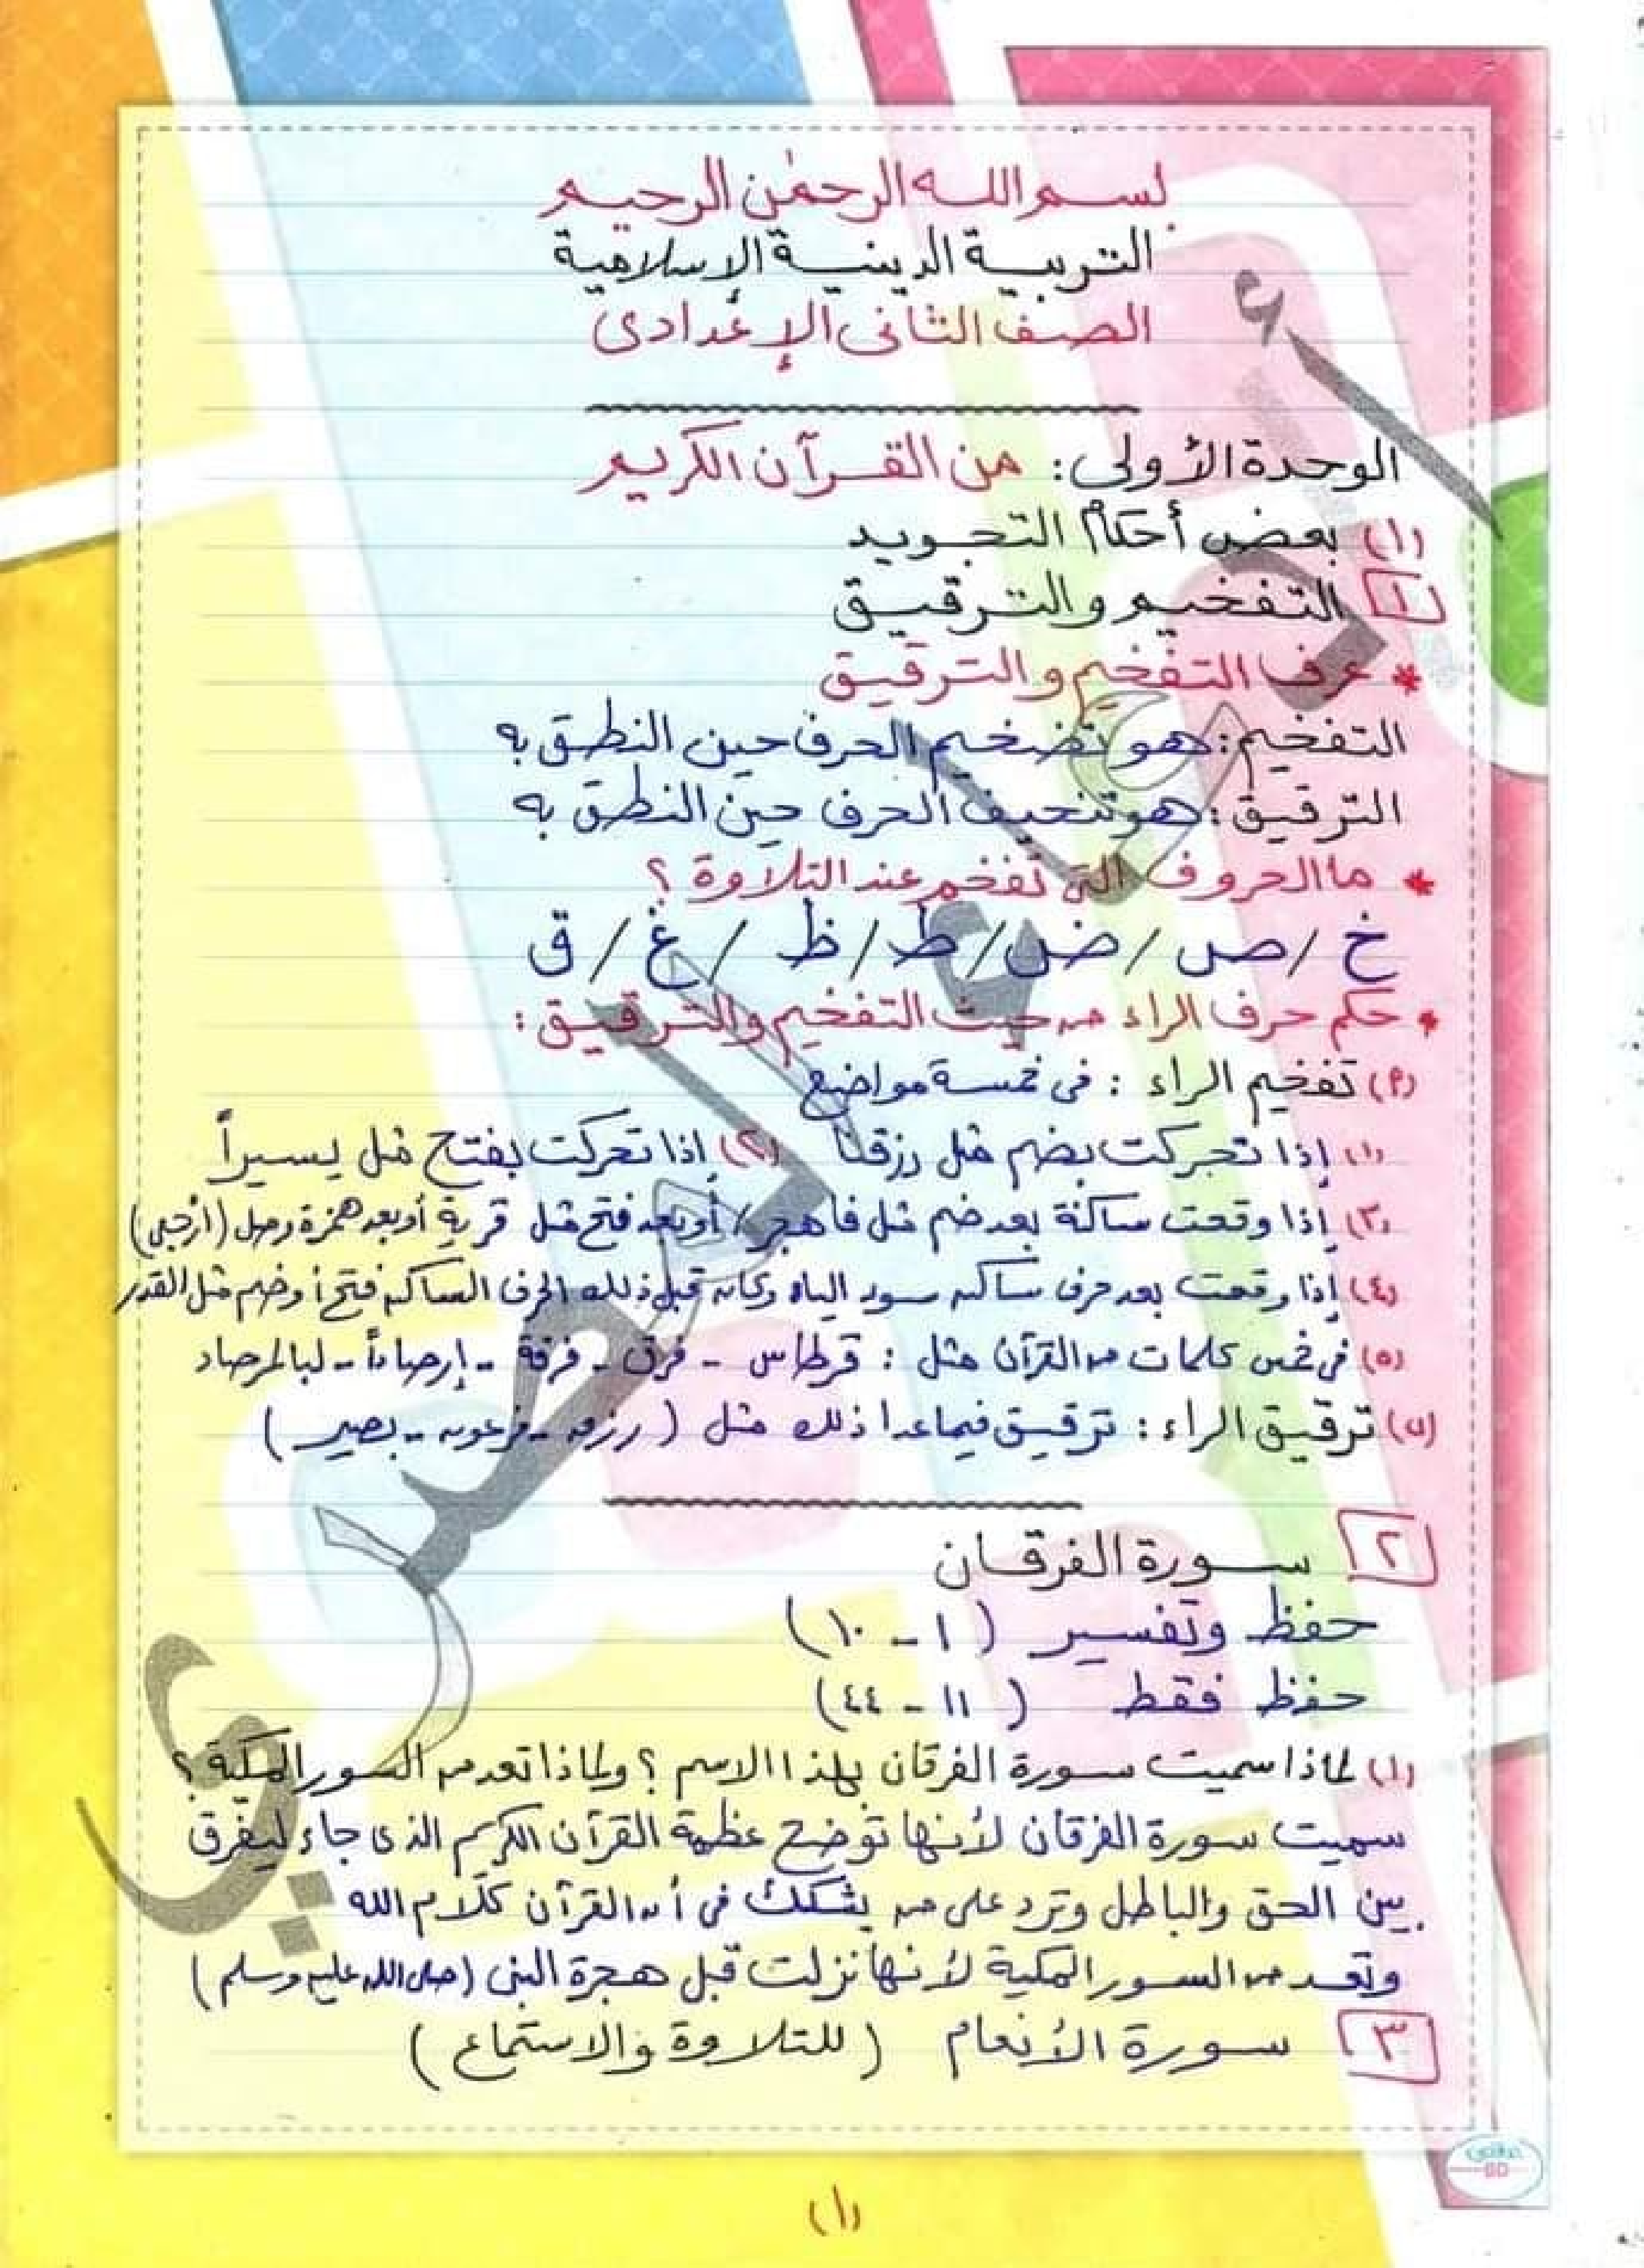 بسم الله الرحمٰن الرحيم
التربية الدينية الإسلامية
الصف الثانى الإعدادى
الوحدة الأولى: من القرآن الكريم
(١) بعض أحكام التجويد
١ التفخيم والترقيق
* عرف التفخيم والترقيق
التفخيم: هو تضخيم الحرف حين النطق به
الترقيق: هو تنحيف الحرف حين النطق به
* ما الحروف التى تفخم عند التلاوة ؟
خ / ص / ض / ط / ظ / غ / ق
* حكم حرف الراء من حيث التفخيم والترقيق:
(أ) تفخيم الراء : فى خمسة مواضيع
(١) إذا تحركت بضم مثل رزقنا (٢) إذا تحركت بفتح مثل يسيراً
(٣) إذا وقعت ساكنة بعد ضم مثل فاهجر / أو بعد فتح مثل قرية أو بعد همزة وصل (ارجعى)
(٤) إذا وقعت بعد حرف ساكن سود الياء وكان قبل ذلك الحرف الساكن فتح أو ضم مثل القدر
(٥) فى خمس كلمات من القرآن مثل : قرطاس - فرق - فرقة - إرصاداً - لبالمرصاد
(ب) ترقيق الراء : ترقيق فيما عدا ذلك مثل ( رزق - فرعون - بصير )
٢ سورة الفرقان
حفظ وتفسير ( ١ - ١٠ )
حفظ فقط ( ١١ - ٤٤ )
(١) لماذا سميت سورة الفرقان بهذا الاسم ؟ ولماذا تعد من السور المكية ؟
سميت سورة الفرقان لأنها توضح عظمة القرآن الكريم الذى جاء ليفرق
بين الحق والباطل وترد على من يشكك فى أن القرآن كلام الله
وتعد من السور المكية لأنها نزلت قبل هجرة النبى (صلى الله عليه وسلم)
٣ سورة الأنعام ( للتلاوة والاستماع )
(١)